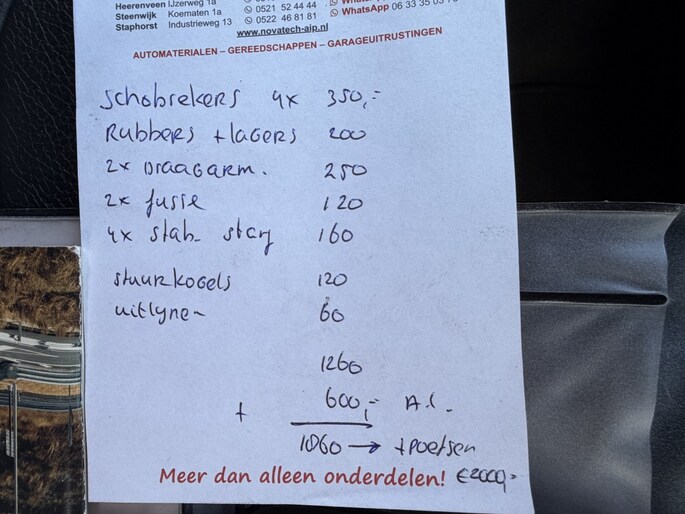 Heerenveen IJzerweg 1a
Steenwijk Koematen 1a 0521 52 44 44
Staphorst Industrieweg 13 0522 46 81 81 WhatsApp 06 33 35 03
www.novatech-aip.nl
AUTOMATERIALEN – GEREEDSCHAPPEN – GARAGEUITRUSTINGEN
Schobrekers 4x 350,-
Rubbers + lagers 200
2x Draagarm. 250
2x fusse 120
4x stab. stang 160
stuurkogels 120
uitlynen 60
1260
+ 600,- A.L.
1860 → + poetsen
Meer dan alleen onderdelen! €2000,-